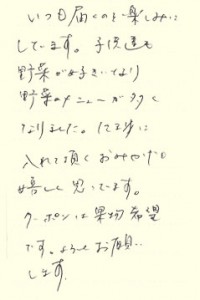 いつも届くのを楽しみに
しています。子供達も
野菜が好きになり
野菜のメニューが多く
なりました。たまに
入れて頂くおみやげも
嬉しく思っています。
クーポンは果物希望
です。よろしくお願い
します。